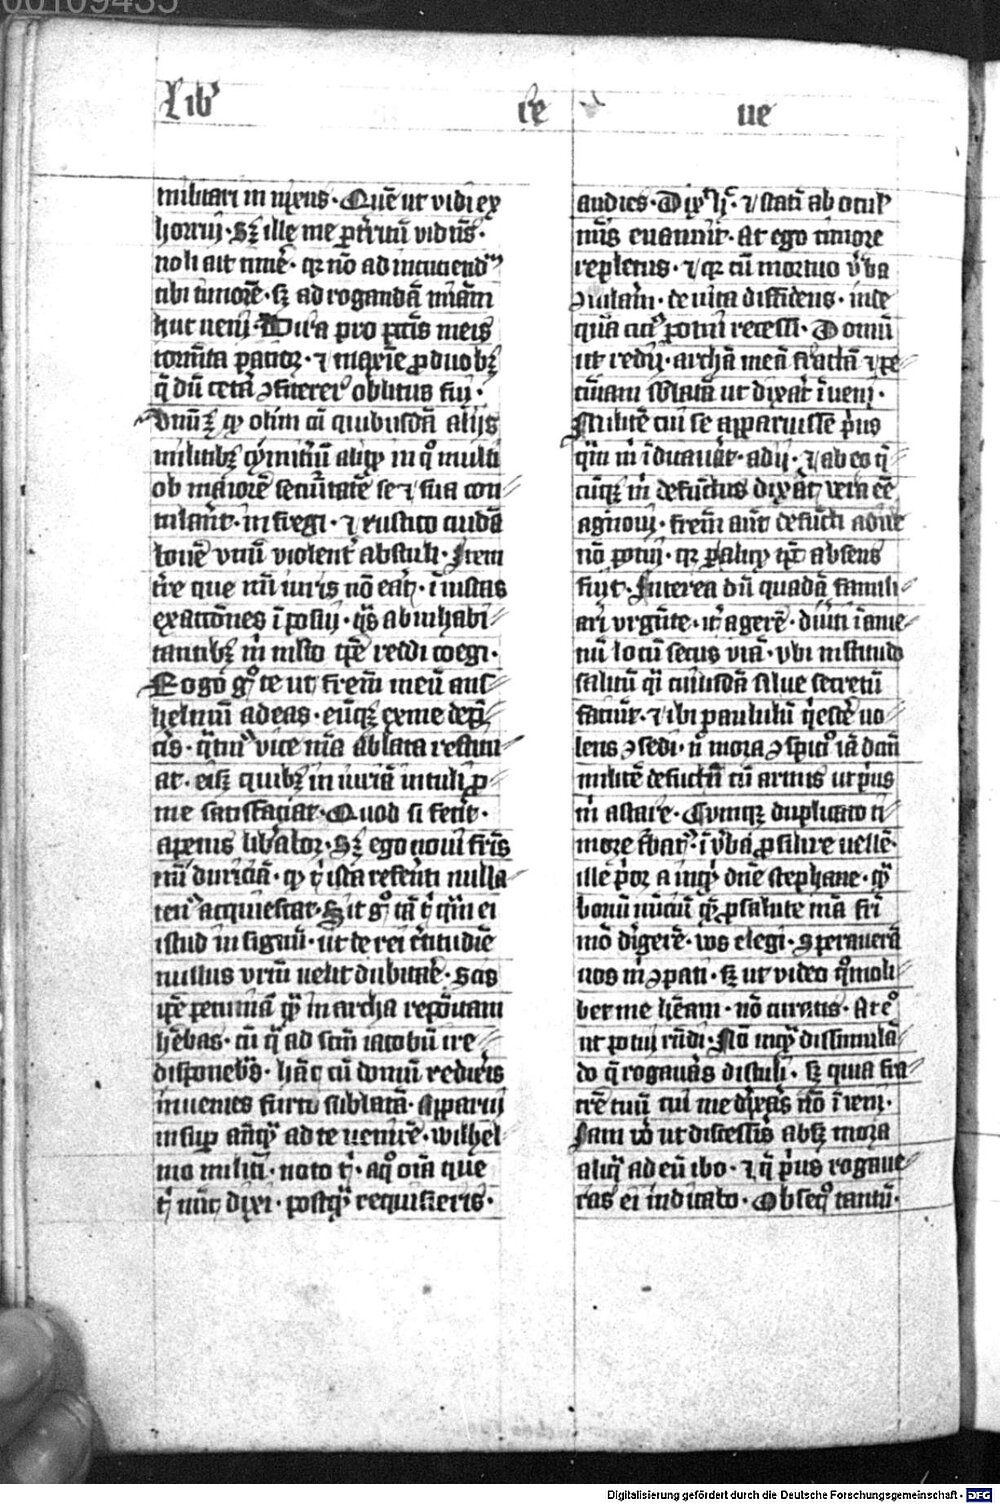 00109435
Lib'
ce
ue
militari in nixus · Quē ut vidi ex
horrui · Sʒ ille me ꝑt'ritū vidēs ·
noli ait timē · qr nō ad incuciend'
tibi timorē · sʒ ad rogandā miām
huc veni · Dura pro pctīs meis
tormīta patior · ⁊ maxīe ꝓ duobʒ
q̄ dū cetā ↄfiterer' oblitus fui ·
Vnū ʒ qꝫ olim cū quibusdā aliis
militibʒ cymitiū aliqꝫ in qͦ multi
ob maiorē secūtatē se ⁊ sua con
tulān̄t · infregi · ⁊ rustico cuidā
bouē vnū violent' abstuli · Item
t're que mīī iuris nō eāt · iniustas
exactōnes īposui · qͣs ab inhabi
tantibʒ iniusto tp̄e reddi coegi ·
Rogo gͦ te ut frem̄ meū ans
helmū adeas · eūqʒ ex me dep̄
ceris · qͣtin' vice mīa ablata restitu
at · eisqʒ quibʒ in iuriā intuli ꝓ
me satisfaciat · Quod si fec'it ·
apenis lib'abor · Sʒ ego noui fr̄is
mīi duriciā · qꝫ tͥ ista refenti nulla
ten' acquiescat · Sit gͦ tā tͥ qͣm ei
istud in signū · ut de rei c'titudīe
nullus vr̄um uelit dubitare · Scis
ip̄e pecuniā qͣm in archa repoītam
hēbas · cū q̄ ad scm̄ iacobū ire
disponebas · hāc cū domū redieris
inuenies furto sublatā · Apparui
insuꝑ anteqͣ ad te venirē · wilhel
mo militi · noto tͥ · a qͦ oīa que
tͥ nūc dixi · postqͣ requisieris ·
audies · Dix' h' · ⁊ stati ab ocul'
meis euanuit · At ego timore
repletus · ⁊ qr cū mortuo v'ba
ↄtulam · de uita diffidens · inde
quā cici' potui recessi · Domū
ut redii · archā meā fractā ⁊ pe
cuniam sblatā ut dixat inueni ·
Militē cui se apparuisse p̄us
qͣm m̄ iudicauat · adii · ⁊ ab eo q̄
cūqʒ m̄ defūctus dixāt vera eē
agnoui · frem̄ aut defūcti adire
nō potui · qr ꝑ aliqͦ tp̄s absens
fuit · Interea dū quadā famili
ari vrgēte · it' agere · diuti iame
nū locū secus viā · vbi multitudo
salicū qͥ cuiusdā silue secretū
faciūt · ⁊ ibi paululū qͥescē uo
lens ↄsedi · n̄ mora ↄspicio iā dcm̄
militē defūctū cū armis ut p̄us
m̄ astare · Cumqʒ duplicato ti
more · ī v'ba ꝓsilire uellē ·
ille p'or a inqͥt dn̄e stephane · qͣm
bonū nūciū qͣ ꝓ salute mīa fr̄i
mō digerē · vos elegi · Sperauerā
vos m̄ ↄpati · sʒ ut video qͦmoli
ber me hēam · nō curatis · At eͦ
ut potui rn̄di · Nō inqͣ dissimulā
do q̄ rogauas distuli · sʒ quia fra
tre tuū cui me dixas nō inueni ·
Iam v'o ut discessis absqʒ mora
aliqͣ ad eū ibo · ⁊ q̄ p̄us rogaue
ras ei indicabo · Obseqͦ tantū ·
Digitalisierung gefördert durch die Deutsche Forschungsgemeinschaft - DFG